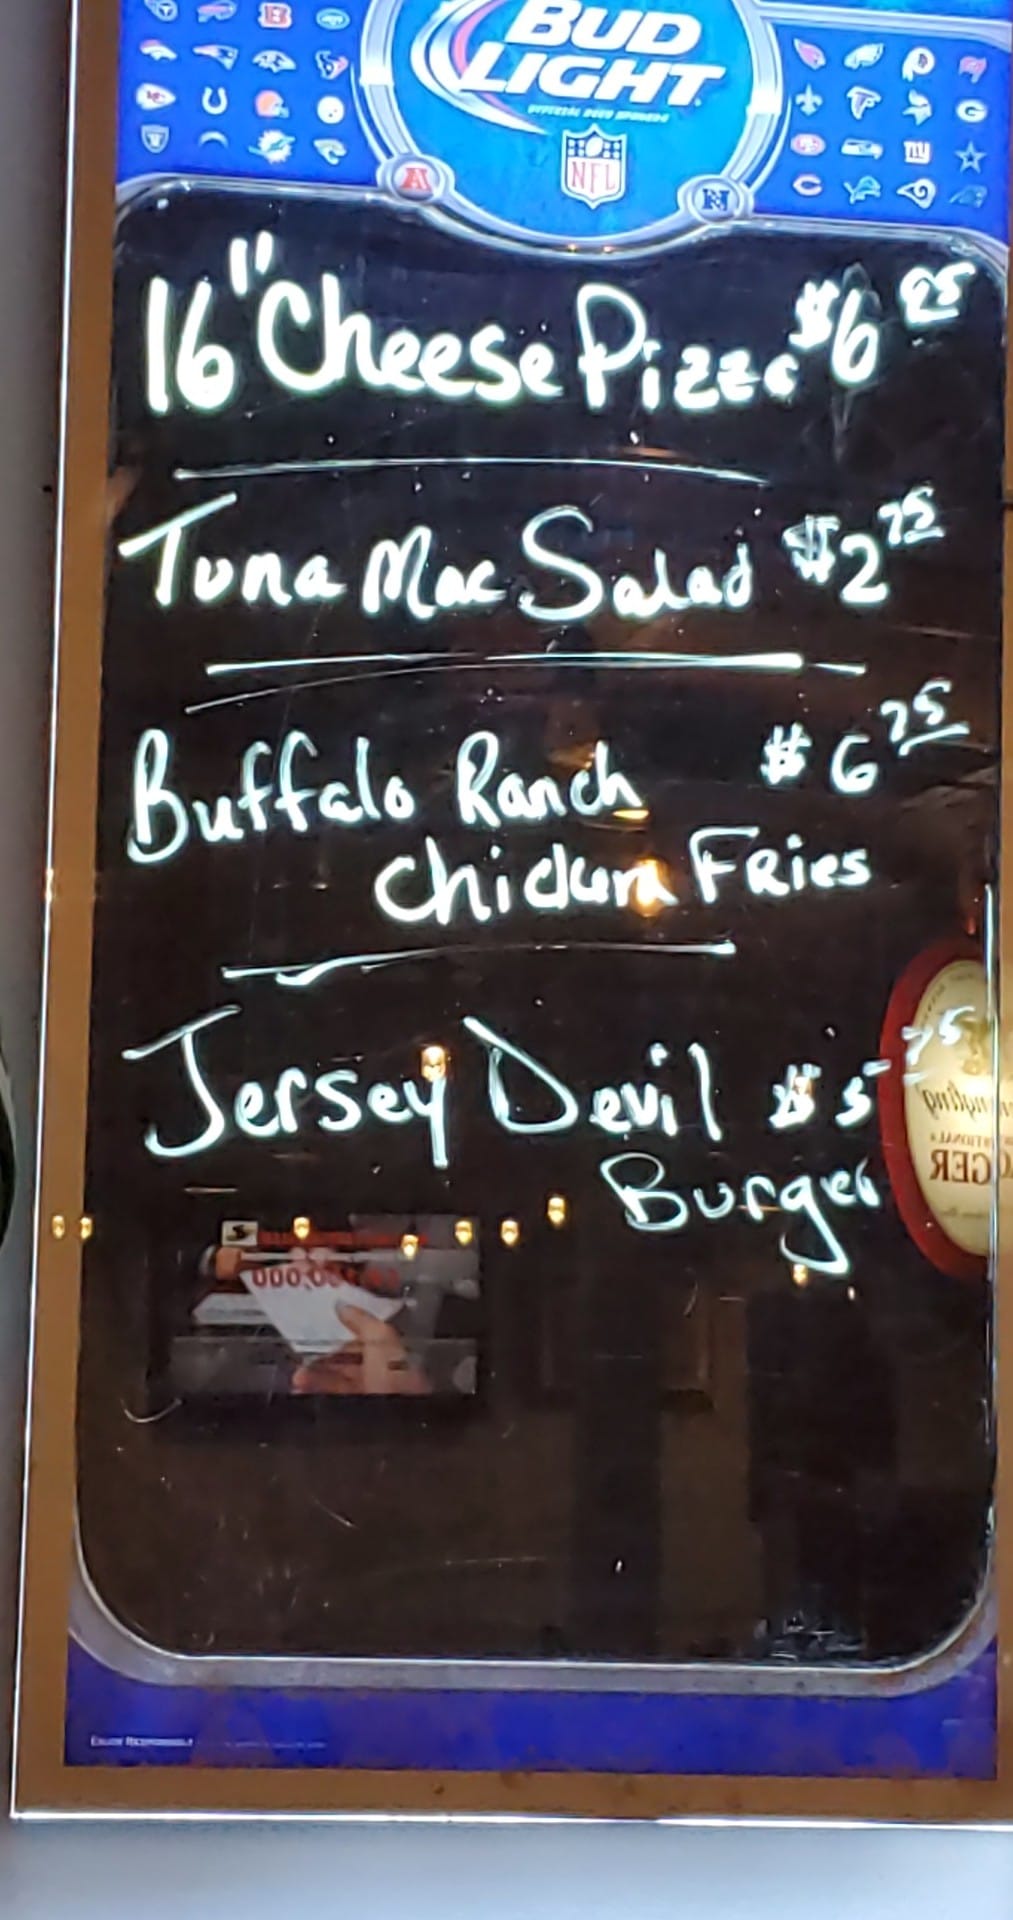 BUD
LIGHT
OFFICIAL BEER SPONSOR
NFL
A
N
16" Cheese Pizza $6 25
Tuna Mac Salad $2 75
Buffalo Ranch $6 75
Chicken Fries
Jersey Devil $5 75
Burger
LAGER